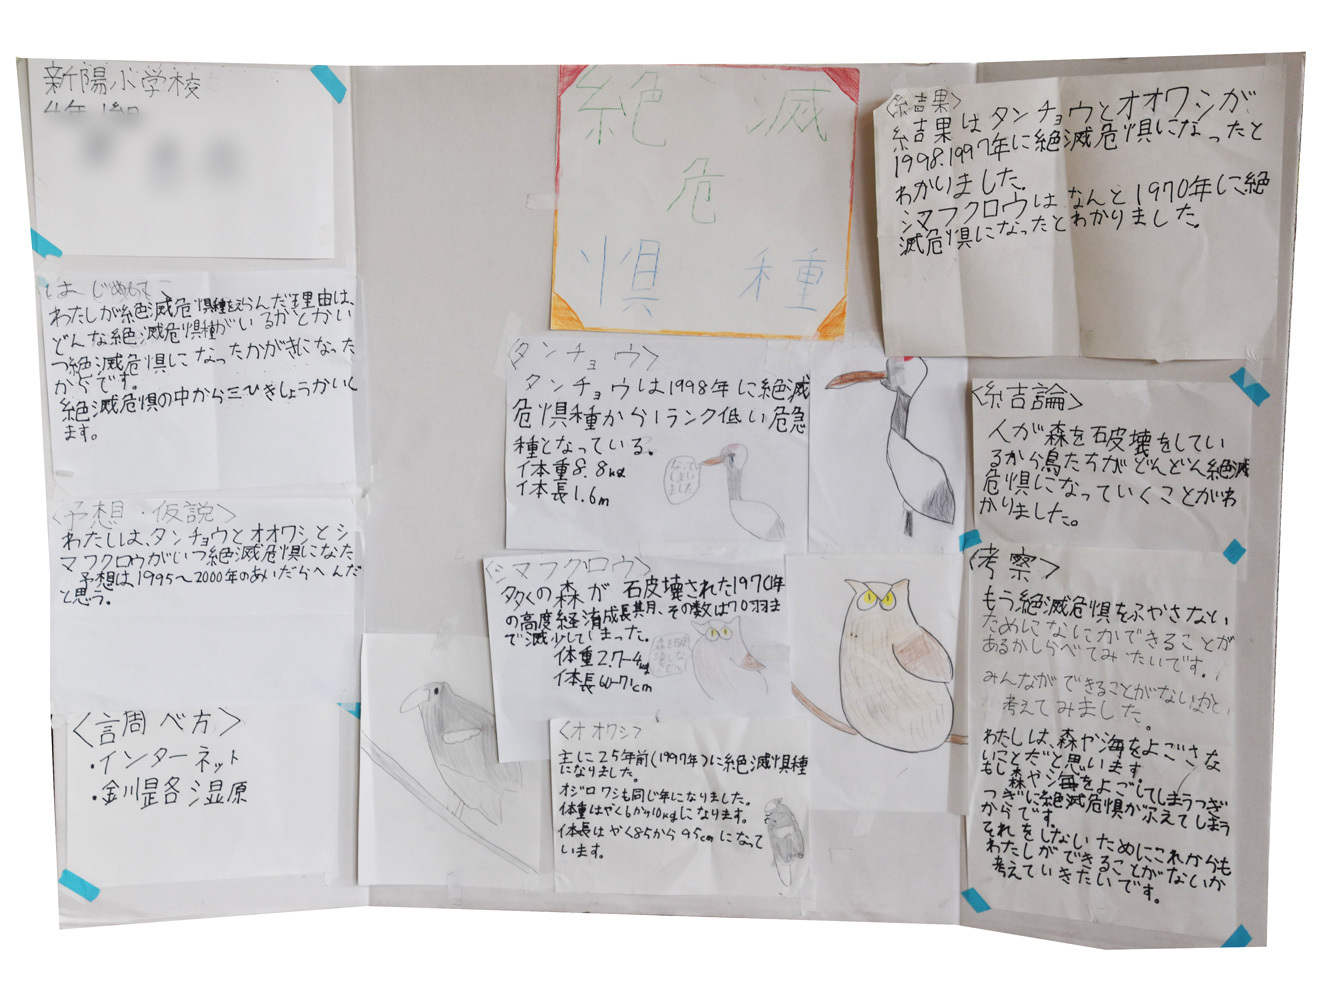 新陽小学校
はじめに
わたしが絶滅危惧種をえらんだ理由は、
どんな絶滅危惧種がいるかとかい
つ絶滅危惧になったかがきになった
からです。
絶滅危惧の中から三びきしょうかいし
ます。
<予想・仮説>
わたしは、タンチョウとオオワシとシ
マフクロウがいつ絶滅危惧になた
予想は1995〜2000年のあいだらへんだ
と思う。
<調べ方>
・インターネット
・釧路湿原
絶滅
危
惧種
<タンチョウ>
タンチョウは1998年に絶滅
危惧種から1ランク低い危急
種となっている。
体重8.8kg
体長1.6m
なって
しまい
ました
<シマフクロウ>
多くの森が破壊された1970年
の高度経済成長期、その数は70羽まで
で減少してしまった。
体重2.7-4kg
体長60-71cm
<オオワシ>
主に25年前(1997年)に絶滅惧種
になりました。
オジロワシも同じ年になりました。
体重はやく6から10kgになります。
体長はやく85から95cmになって
います。
<結果>
結果はタンチョウとオオワシが
1998.1997年に絶滅危惧になったと
わかりました。
シマフクロウはなんと1970年に絶
滅危惧になったとわかりました。
<結論>
人が森を破壊をしてい
るから鳥たちがどんどん絶滅
危惧になっていくことがわ
かりました。
<考察>
もう絶滅危惧をふやさない
ためになにかできることが
あるかしらべてみたいです。
みんなができることがないかと
考えてみました。
わたしは、森や海をよごさな
いことだと思います
もし森や海をよごしてしまうつぎ
つぎに絶滅危惧がふえてしまう
からです。
それをしないためにこれからも
わたしができることがないか
考えていきたいです。